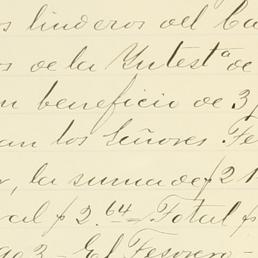 os linderos del Ca
os de la Yntestª de
n beneficio de 3
an los Señores Fe
r, la suma de $21
cal $2.64 – Total $
3 – El Tesorero –